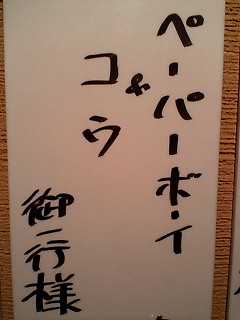 ペーパーボーイ
&
コウ
御一行様